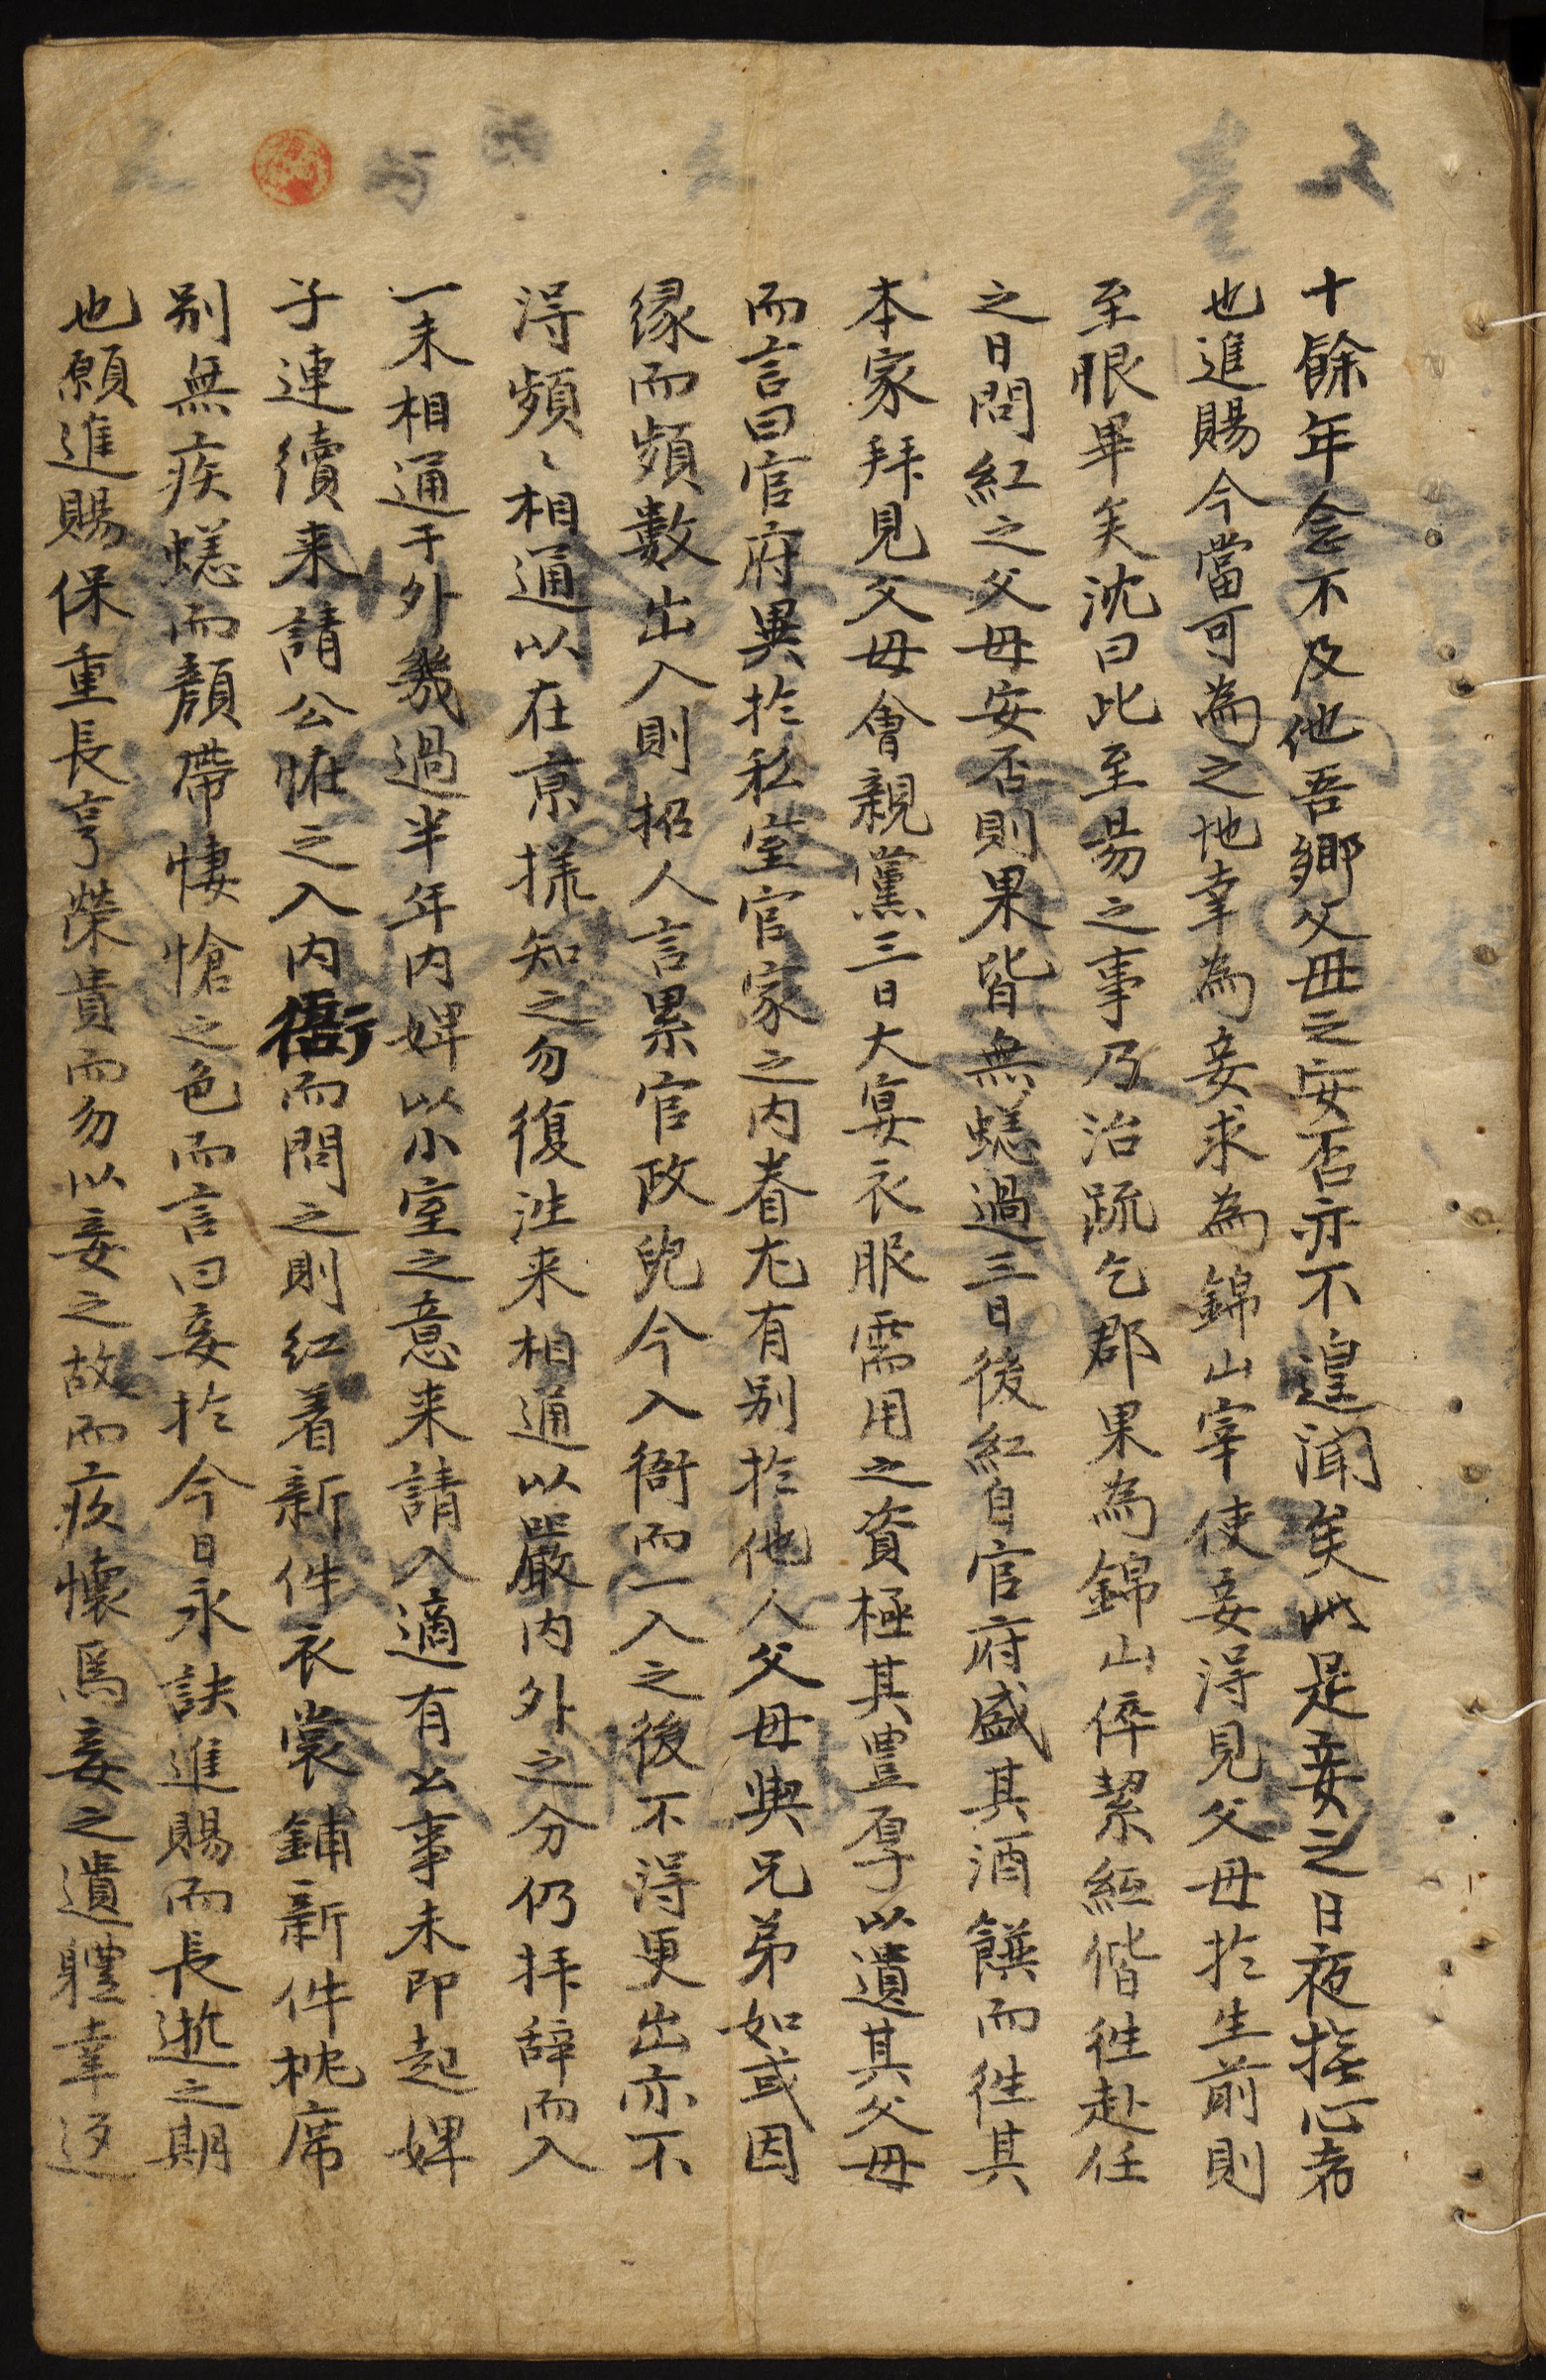 十餘年念不及他吾鄉父母之安否亦不遑聞矣此是妾之日夜撫心者
也進賜今當可為之地幸為妾求為錦山宰使妾得見父母於生前則
至恨畢矣沈曰此至昜之事乃治疏乞郡果為錦山倅絜紅偕徃赴任
之日問紅之父母安否則果皆無恙過三日後紅自官府盛其酒饌而徃其
本家拜見父母會親黨三日大宴衣服需用之資極其豊厚以遺其父母
而言曰官府異於私室官家之內眷尤有別於他人父母與兄弟如或因
緣而頻數出入則招人言累官政兒今入衙而一入之後不得更出亦不
淂頻〻相通以在京㨾知之勿復徃来相通以嚴內外之分仍拜辞而入
一未相通于外幾過半年內婢以小室之意来請入適有公事未即起婢
子連續来請公恠之入內衙而問之則紅着新件衣裳鋪新件枕席
別無疾恙而顏帶悽愴之色而言曰妾於今日永訣進賜而長逝之期
也願進賜保重長享榮貴而勿以妾之故而疚懷焉妾之遺軆幸返